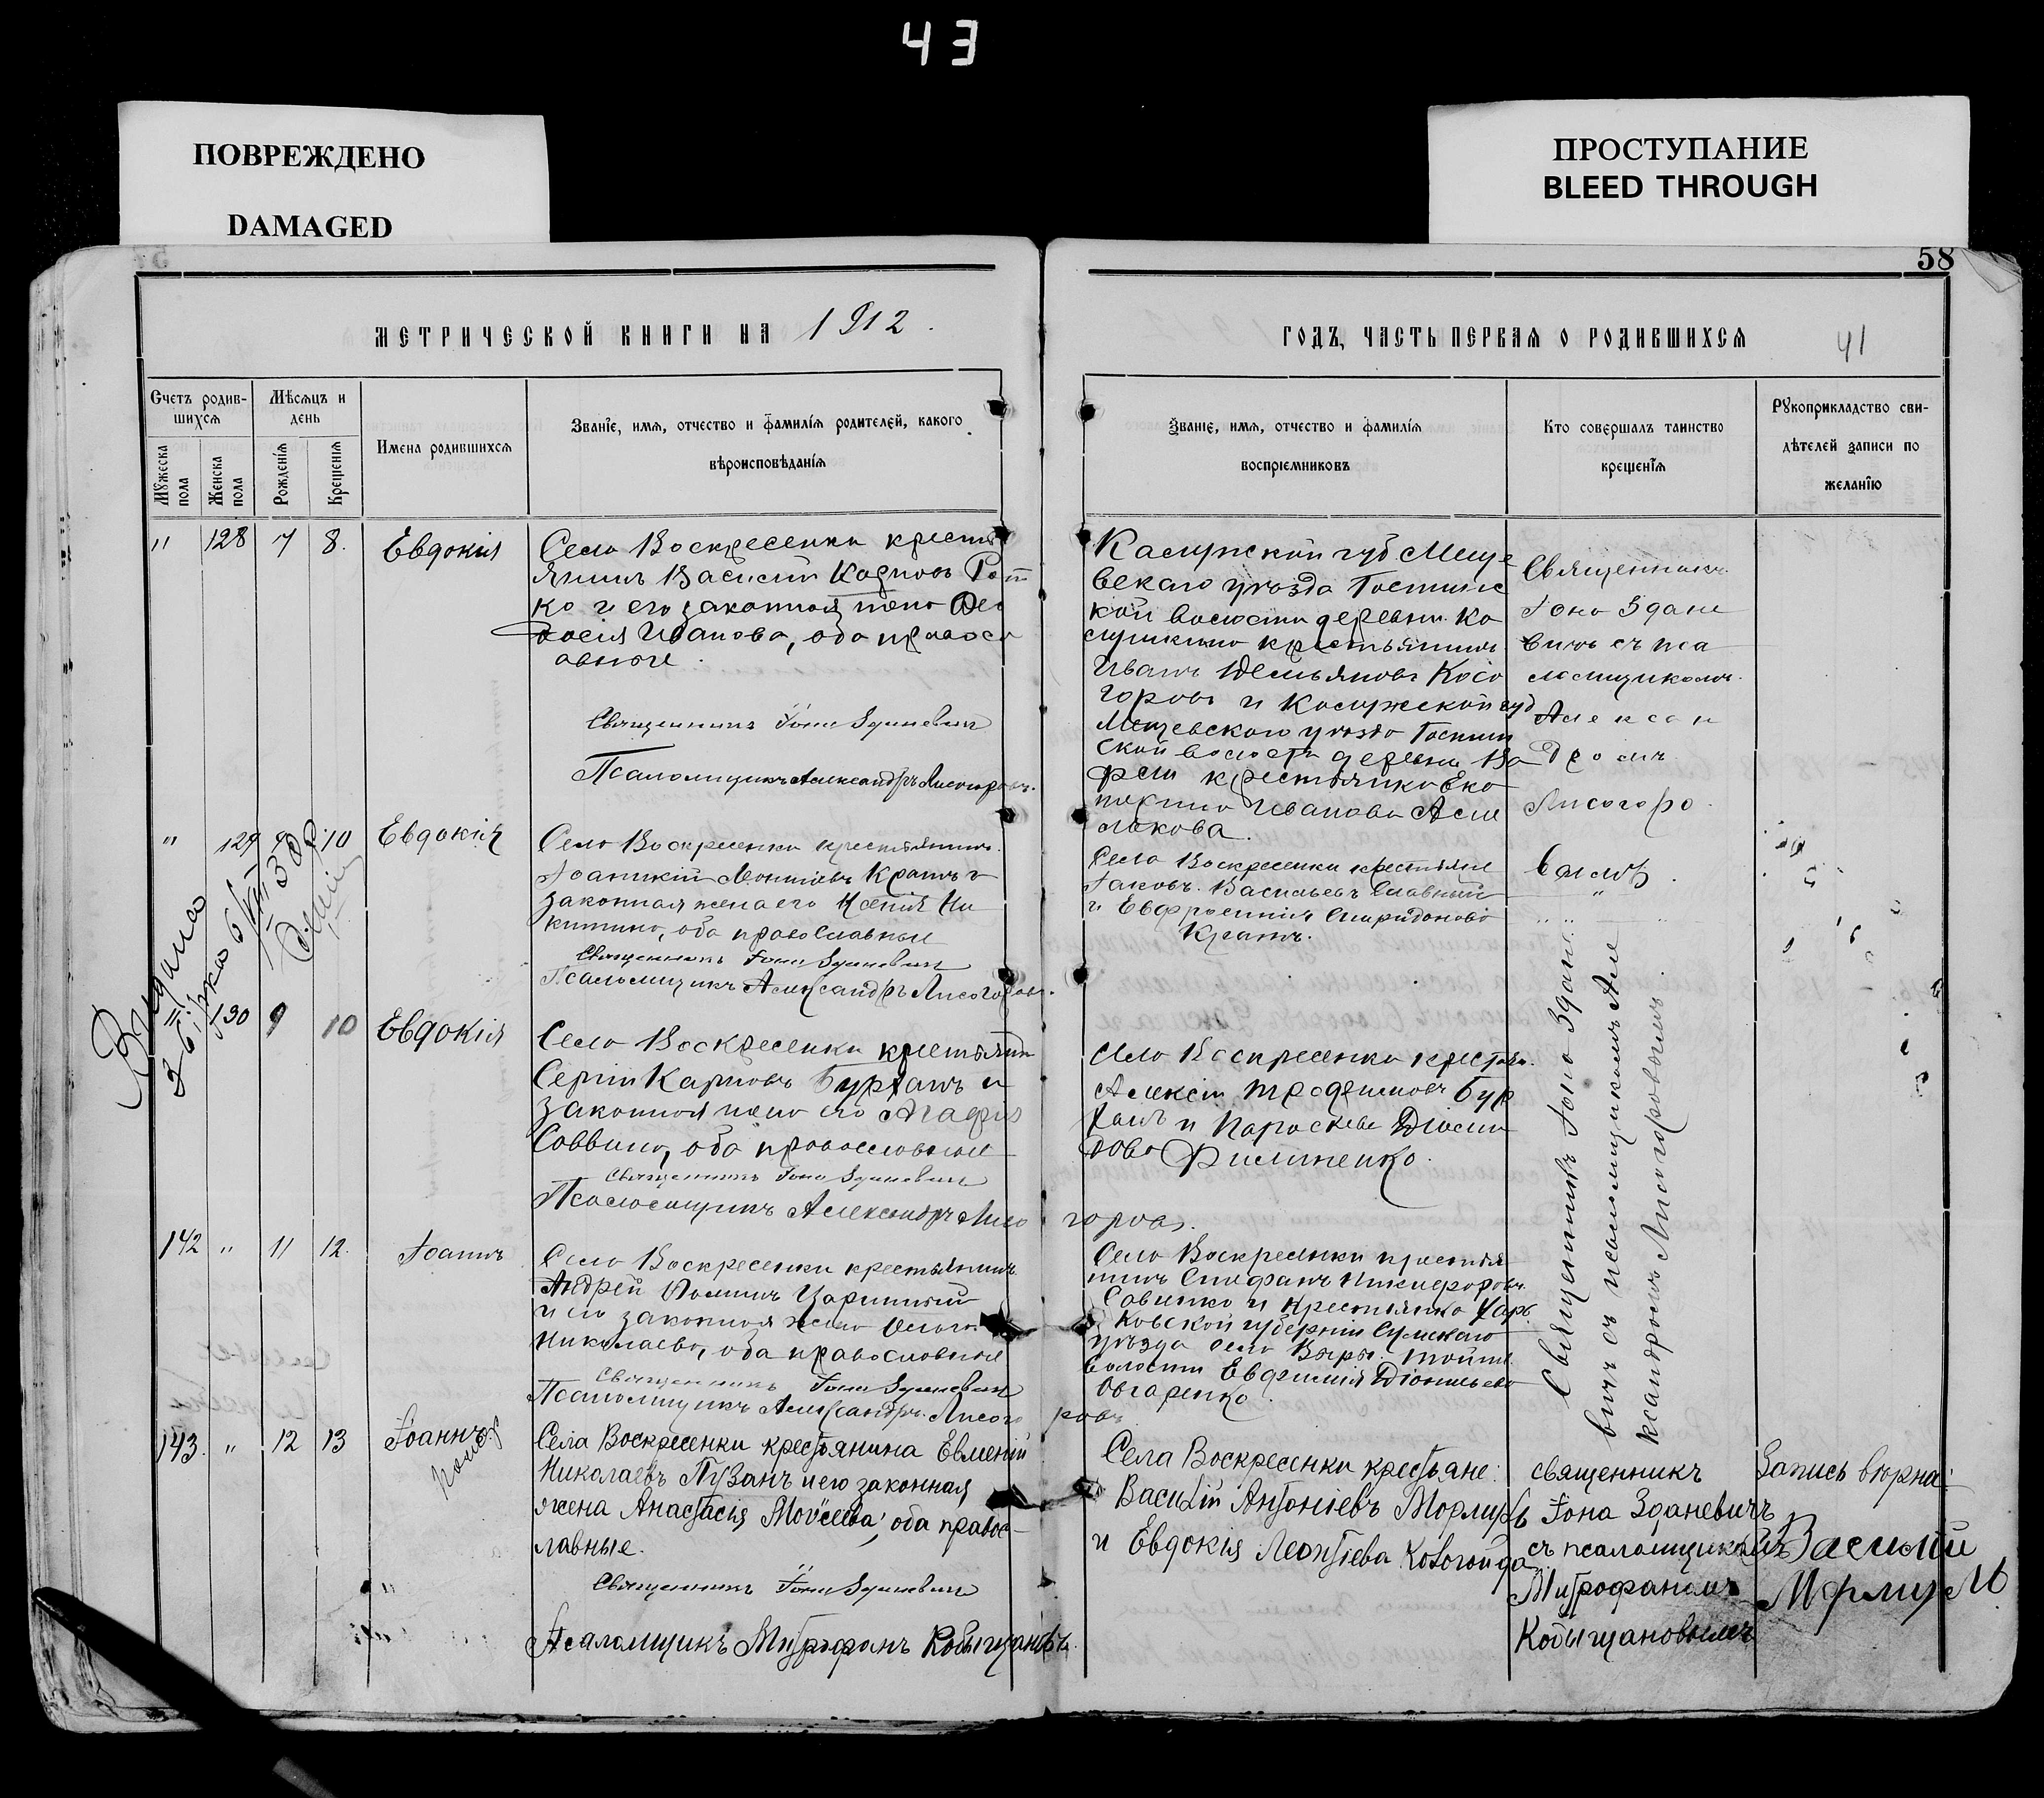 43
ПОВРЕЖДЕНО
DAMAGED
ПРОСТУПАНИЕ
BLEED THROUGH
58
МЕТРИЧЕСКОЙ КНИГИ НА 1912.
ГОДЪ, ЧАСТЬ ПЕРВАЯ О РОДИВШИХСЯ
41
Счетъ родив-
шихся
Мужеска пола
Женска пола
Мѣсяцъ и
день
Рожденія
Крещенія
Имена родившихся
Званіе, имя, отчество и фамилія родителей, какого
вѣроисповѣданія
Званіе, имя, отчество и фамилія
воспріемниковъ
Кто совершалъ таинство
крещенія
Рукоприкладство сви-
дѣтелей записи по
желанію
" 128 7 8. Евдокія
Село Воскресенки кресть
янинъ Василій
ко и его законная жена Ѳео
досія Иванова, оба правосл
авные.
Священникъ Іона Зданевичъ
Псаломщикъ Александръ Лисогоровъ.
Калужской губ Меще
вскаго уѣзда
кой волости деревни Ко
крестьянинъ
Иванъ Демьяновъ Косо
горовъ и Калужской губ
Мещевскаго уѣзда
ской волости деревни
крестьянка Ека
терина Иванова Асм
лакова.
Священникъ
Іона Здане
вичъ съ пса
ломщикомъ
Алексан
дромъ
Лисогоро
вымъ.
" 129 10 Евдокія
Село Воскресенки крестьянинъ
Іоанникій Леонтіевъ Кратъ и
законная жена его Ксенія Ни
китина, оба православные
Священникъ Іона Зданевичъ
Псаломщикъ Александръ Лисогоровъ.
Село Воскресенки крестьяне
Іаковъ Васильевъ Славный
и Евфросинія Спиридонова
Кратъ.
Выдано
" 130 9 10 Евдокія
Село Воскресенки крестьянинъ
Сергій Карповъ Бурханъ и
законная жена его Агафія
Саввина, оба православные
Священникъ Іона Зданевичъ
Псаломщикъ Александръ Лисо горовъ.
Село Воскресенки крестьян.
Алексій Трофимовъ Бур
ханъ и Параскева
дова Филипенко.
Священникъ Іона Здане
вичъ съ псаломщикомъ Але
ксандромъ Лисогоровымъ
142 " 11 12. Іоаннъ
Село Воскресенки крестьянинъ
Андрей Царинный
и его законная жена
Николаева, оба православные
Священникъ Іона Зданевичъ
Псаломщикъ Александръ Лисого ровъ
Село Воскресенки крестья
нинъ Стефанъ Никифоровъ
Савченко и крестьянка Харь
ковской губерніи Сумскаго
уѣзда села Выры
волости Евфимія Діонисьева
Овчаренко.
143. " 12 13 Іоаннъ
Села Воскресенки крестьянина Евменій
Николаевъ Пузанъ и его законная
жена Анастасія Моѵсеева, оба правос-
лавные.
Священникъ Іона Зданевичъ
Псаломщикъ Митрофанъ Кобыщановъ.
Села Воскресенки крестьяне:
Василій Антоніевъ
и Евдокія Леонтіева
священникъ
Іона Зданевичъ
съ псаломщикомъ
Митрофаномъ
Кобыщановымъ
Запись вѣрна:
Василій